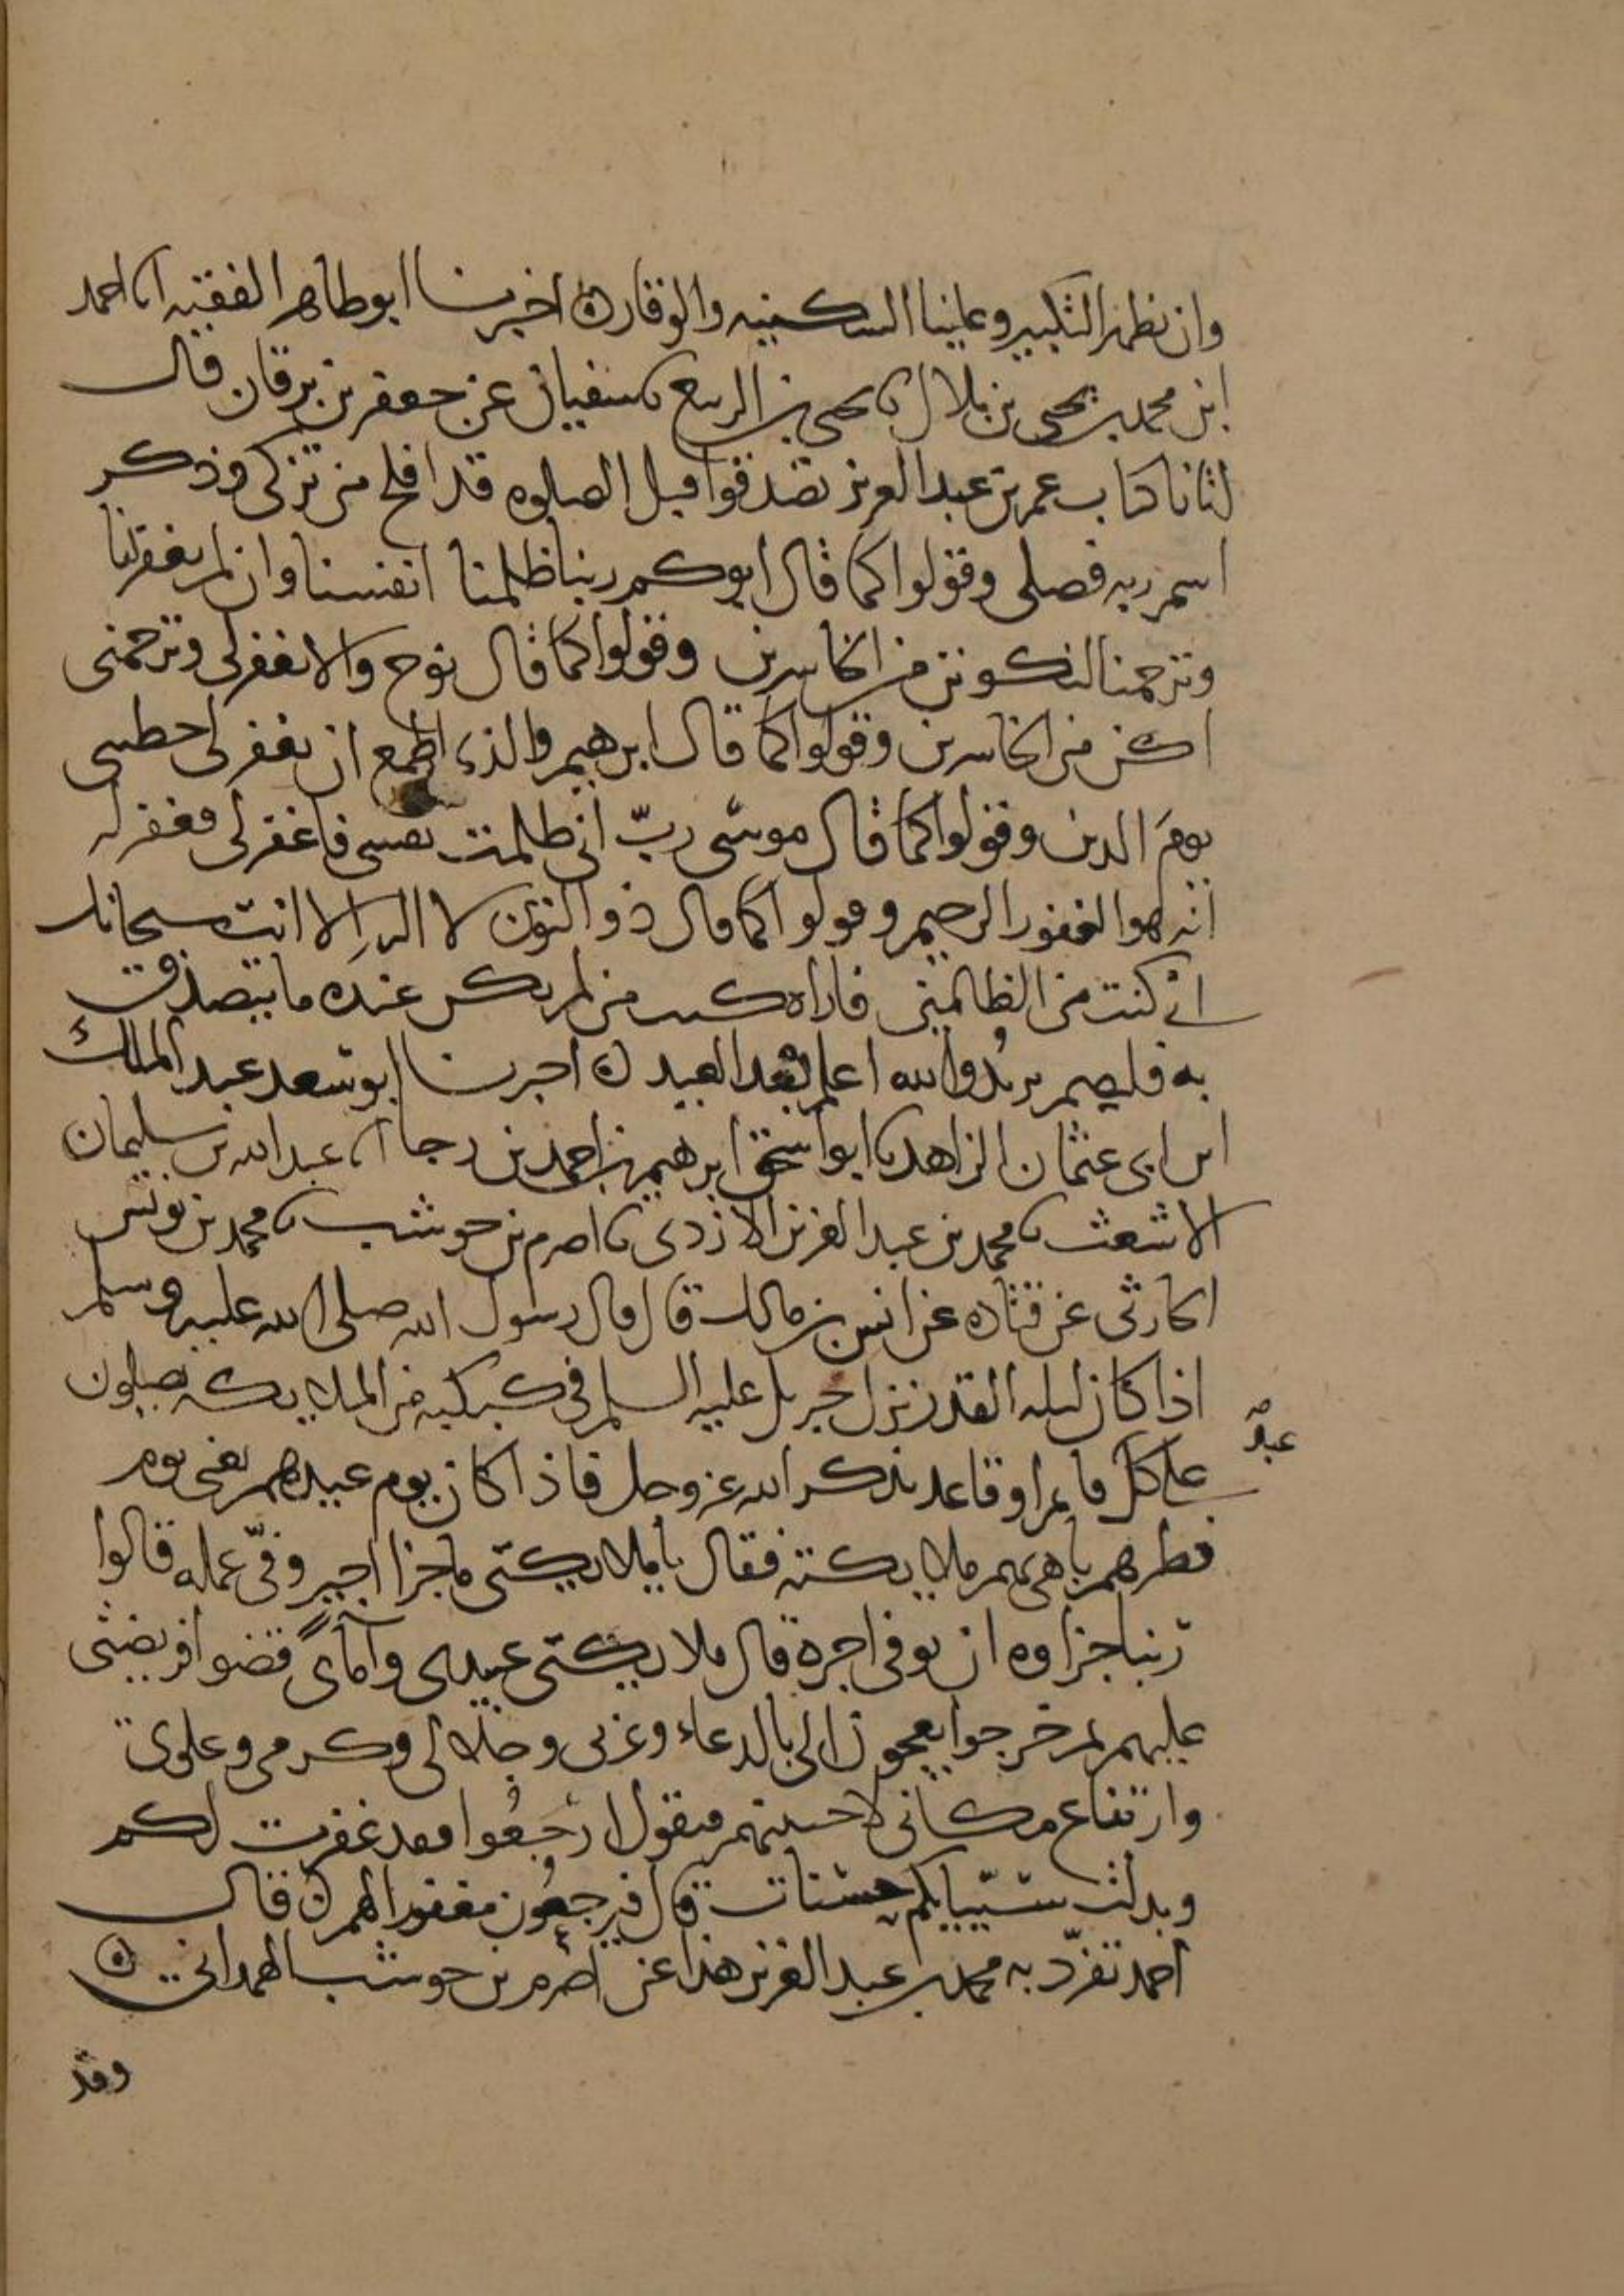 وان نظهر التكبير وعلينا السكينه والوقار ه اخبرنا ابو طاهر الفقيه انا احمد
ابن محمد بن يحيى بن بلال نا يحيى بن الربيع نا سفيان عن جعفر بن برقان قال
اتانا كتاب عمر بن عبد العزيز تصدقوا قبل الصلوه قد افلح من تزكى وذكر
اسم ربه فصلى وقولوا كما قال ابوكم ربنا ظلمنا انفسنا وان لم تغفر لنا
وترحمنا لنكونن من الخاسرين وقولوا كما قال نوح والا تغفر لى وترحمنى
اكن من الخاسرين وقولوا كما قال ابرهيم والذى اطمع ان يغفر لى خطيىى
يوم الدين وقولوا كما قال موسى رب انى ظلمت نفسى فاغفر لى فغفر له
انه هو الغفور الرحيم وقولوا كما قال ذو النون لا اله الا انت سبحانك
انى كنت من الظالمين فاراه كتب من لم يكن عنده ما يتصدق
به فليصم يريد والله اعلم بعد العيد ه اخبرنا ابو سعد عبد الملك
ابن ابى عثمان الزاهد نا ابو اسحق ابرهيم بن احمد بن رجا انا عبد الله بن سليمان
الاشعث نا محمد بن عبد العزيز الازدى نا اصرم بن حوشب نا محمد بن يونس
الحارثى عن قتاده عن انس بن مالك قال قال رسول الله صلى الله عليه وسلم
اذا كان ليله القدر نزل جبريل عليه السلم فى كبكبه من الملايكه يصلون
على كل قايم او قاعد يذكر الله عز وجل فاذا كان يوم عيدهم يعنى يوم
عبد
فطرهم باهى بهم ملايكته فقال يا ملايكتى ما جزا اجير وفّى عمله قالوا
ربنا جزاوه ان يوفى اجره قال ملايكتى عبيدى وآماى قضوا فريضتى
عليهم ثم خرجوا يعجون الى بالدعاء وعزتى وجلالى وكرمى وعلوى
وارتفاع مكانى لاجيبنهم فيقول ارجعوا فقد غفرت لكم
وبدلت سيياتكم حسنات قال فيرجعون مغفورا لهم ه قال
احمد تفرّد به محمد بن عبد العزيز هذا عن اصرم بن حوشب الهمدانى ه
وقد